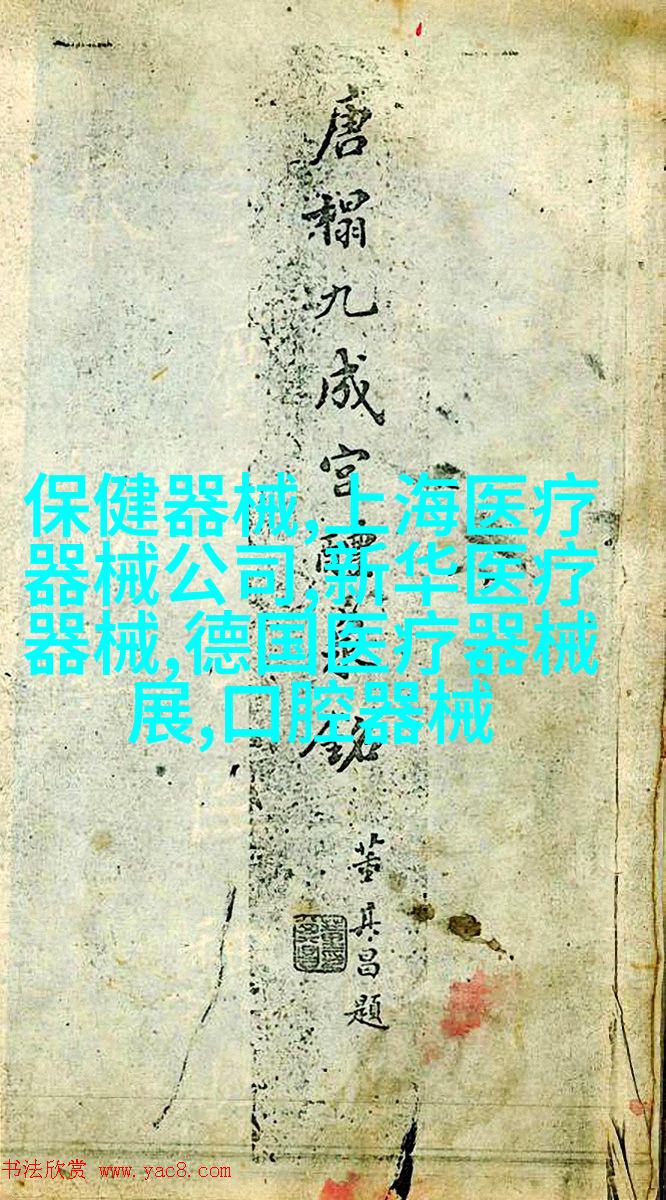 唐榻九成宫醴泉銘
董其昌題
保健器械,上海医疗
器械公司,新华医疗
器械,德国医疗器械
展,口腔器械
书法欣赏 www.yac8.com